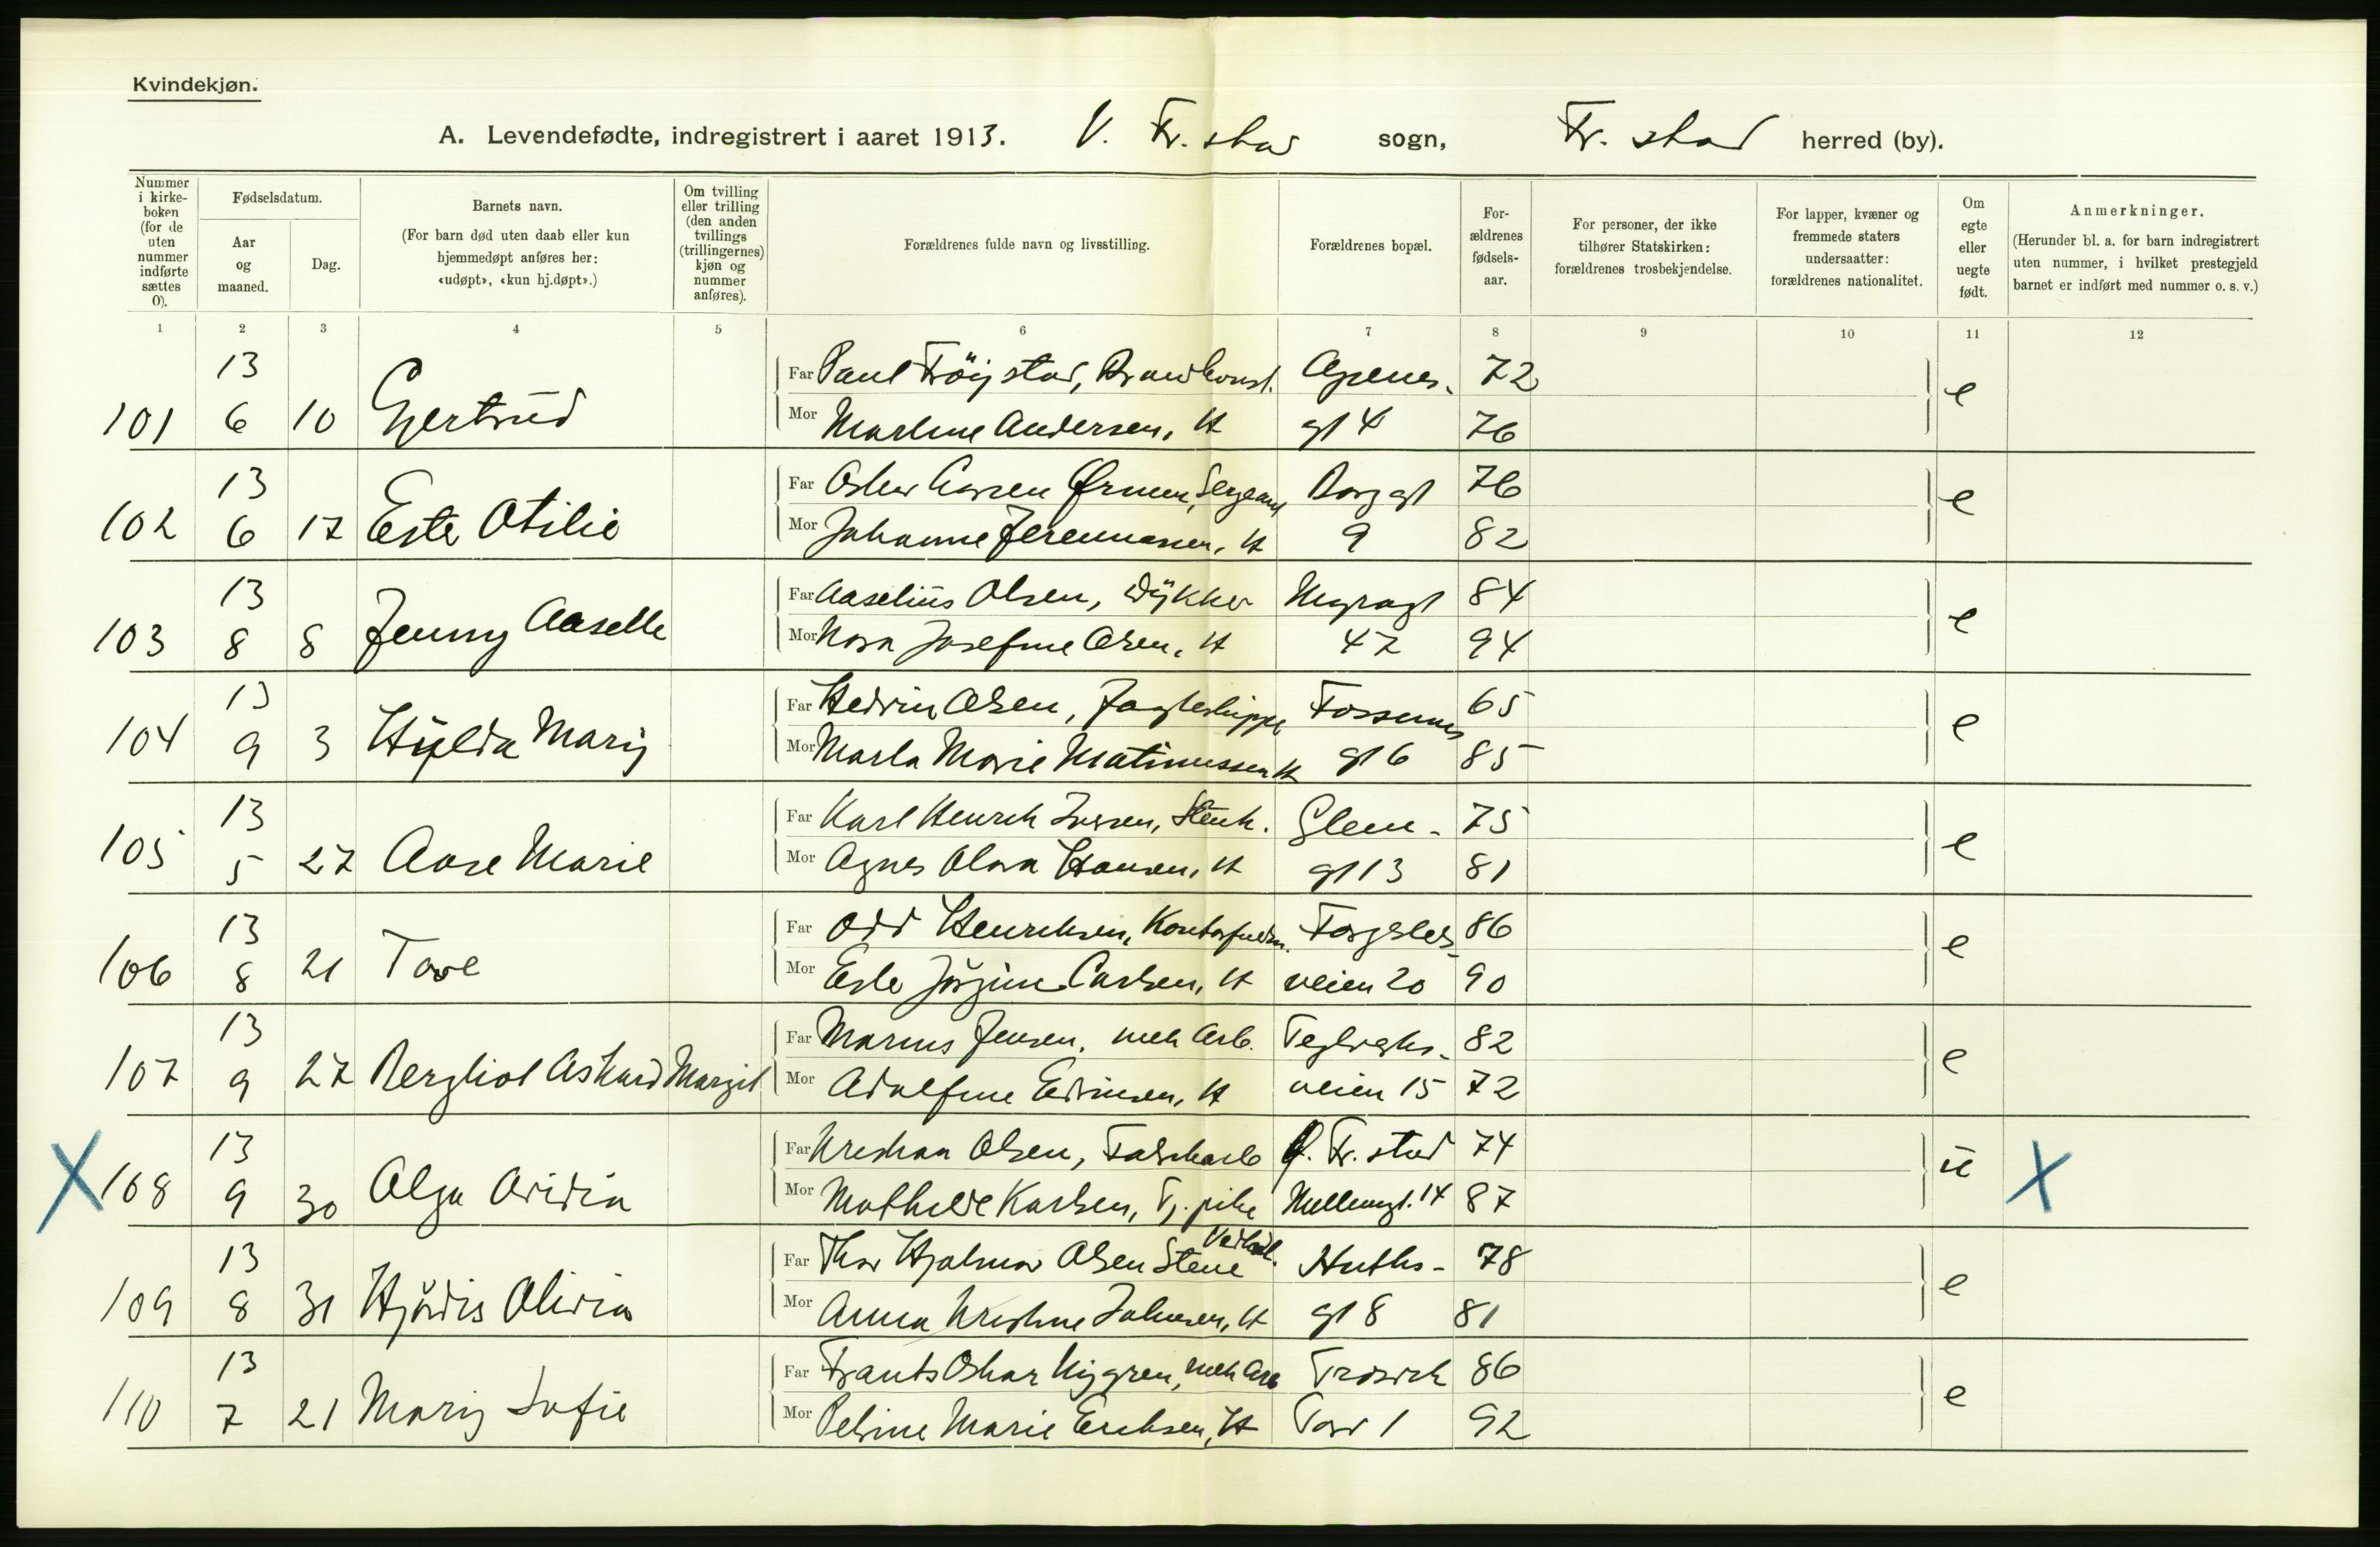 Kvindekjøn.
A. Levendefødte, indregistrert i aaret 1913. V. Fr. stad sogn, Fr. stad herred (by).
Nummer i kirkeboken (for de uten nummer indførte sættes 0).
Fødselsdatum.
Aar og maaned.
Dag.
Barnets navn.
(For barn død uten daab eller kun hjemmedøpt anføres her: «udøpt», «kun hj.døpt».)
Om tvilling eller trilling (den anden tvillings (trillingernes) kjøn og nummer anføres).
Forældrenes fulde navn og livsstilling.
Forældrenes bopæl.
Forældrenes fødselsaar.
For personer, der ikke tilhører Statskirken: forældrenes trosbekjendelse.
For lapper, kvæner og fremmede staters undersaatter: forældrenes nationalitet.
Om egte eller uegte født.
Anmerkninger.
(Herunder bl. a. for barn indregistrert uten nummer, i hvilket prestegjeld barnet er indført med nummer o. s. v.)
1 2 3 4 5 6 7 8 9 10 11 12
13 Far Paul Tröijstad, 72
101 6 10 Gjertrud Mor Andersen, H gt 4 76 e
13 Far Sergeant Borggt 76
102 6 17 Ester Otilie Mor Johanne H 9 82 e
13 Far Aaselius Olsen, Dykker 84
103 8 8 Jenny Aaselle Mor Nora Josefine Olsen, H 47 94 e
13 Far Olsen, 65
104 9 3 Hylda Marij Mor Marta Marie H gt 6 85 e
13 Far Karl Henrik Glem- 75
105 5 27 Aase Marie Mor Agnes Olava Hansen, H gt 13 81 e
13 Far Odd Henriksen, 86
106 8 21 Tove Mor Jörgine Carlsen, H veien 20 90 e
13 Far Marius Jensen, mek Arb. 82
107 9 27 Bergliot Margit Mor Adolfine H veien 15 72 e
13 Far Kristian Olsen, Fr. stad 74
X 108 9 30 Olga Mor Mathilde Karlsen, Tj. pike 14 87 u X
13 Far Thor Hjalmar Olsen Stene 78
109 8 31 Hjördis Olivia Mor Anna Kristine Johnsen, H gt 8 81 e
13 Far Frants Oskar Nygren, mek Arb Trosvik 86
110 7 21 Marij Sofie Mor Petrine Marie Eriksen, H Torv 1 92 e